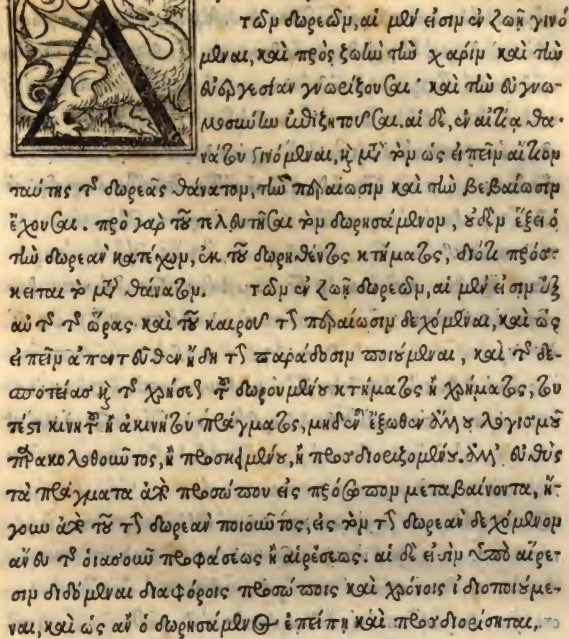 Δ τῶν δωρεῶν, αἱ μέν εἰσιν ἐν ζωῇ γινό
μεναι, καὶ πρὸς ζωὴν τὴν χάριν καὶ τὴν
εὐεργεσίαν γνωρίζουσαι· καὶ τὴν εὐγνω-
μοσύνην ἐπιζητοῦσαι. αἱ δὲ, ἐν αἰτίᾳ θα-
νάτου γινόμεναι, ἢ μετὰ τὸν ὡς εἰπεῖν αἴτιον
ταύτης τῆς δωρεᾶς θάνατον, τὴν περαίωσιν καὶ τὴν βεβαίωσιν
ἔχουσαι. πρὸ γὰρ τοῦ τελευτῆσαι τὸν δωρησάμενον, οὐδὲν ἕξει ὁ
τὴν δωρεὰν κατέχων, ἐκ τοῦ δωρηθέντος κτήματος, διότι πρόσ-
κειται τὸ μετὰ θάνατον. τῶν ἐν ζωῇ δωρεῶν, αἱ μέν εἰσιν ἐξ
αὐτῆς τῆς ὥρας καὶ τοῦ καιροῦ τὴν περαίωσιν δεχόμεναι, καὶ ὡς
εἰπεῖν ἀπεντεῦθεν ἤδη τὴν παράδοσιν ποιούμεναι, καὶ τῆς δε-
σποτείας καὶ τῆς χρήσεως τοῦ δωρουμένου κτήματος ἢ χρήματος, του
τέστι κινητοῦ ἢ ἀκινήτου πράγματος, μηδενὸς ἔξωθεν ἄλλου λογισμοῦ
παρακολουθοῦντος, ἢ προσκειμένου, ἢ προσδιοριζομένου. ἀλλ' εὐθὺς
τὰ πράγματα ἀπὸ προσώπου εἰς πρόσωπον μεταβαίνοντα, ἤ-
γουν ἀπὸ τοῦ τὴν δωρεὰν ποιοῦντος, εἰς τὸν τὴν δωρεὰν δεχόμενον
ἄνευ τῆς οἱασοῦν προφάσεως ἢ αἱρέσεως. αἱ δὲ εἰσὶν ὑπὸ αἵρε-
σιν διδόμεναι διαφόροις προσώποις καὶ χρόνοις ἰδιοποιούμε-
ναι, καὶ ὡς ἂν ὁ δωρησάμενος ἐπείπῃ καὶ προσδιορίσηται.